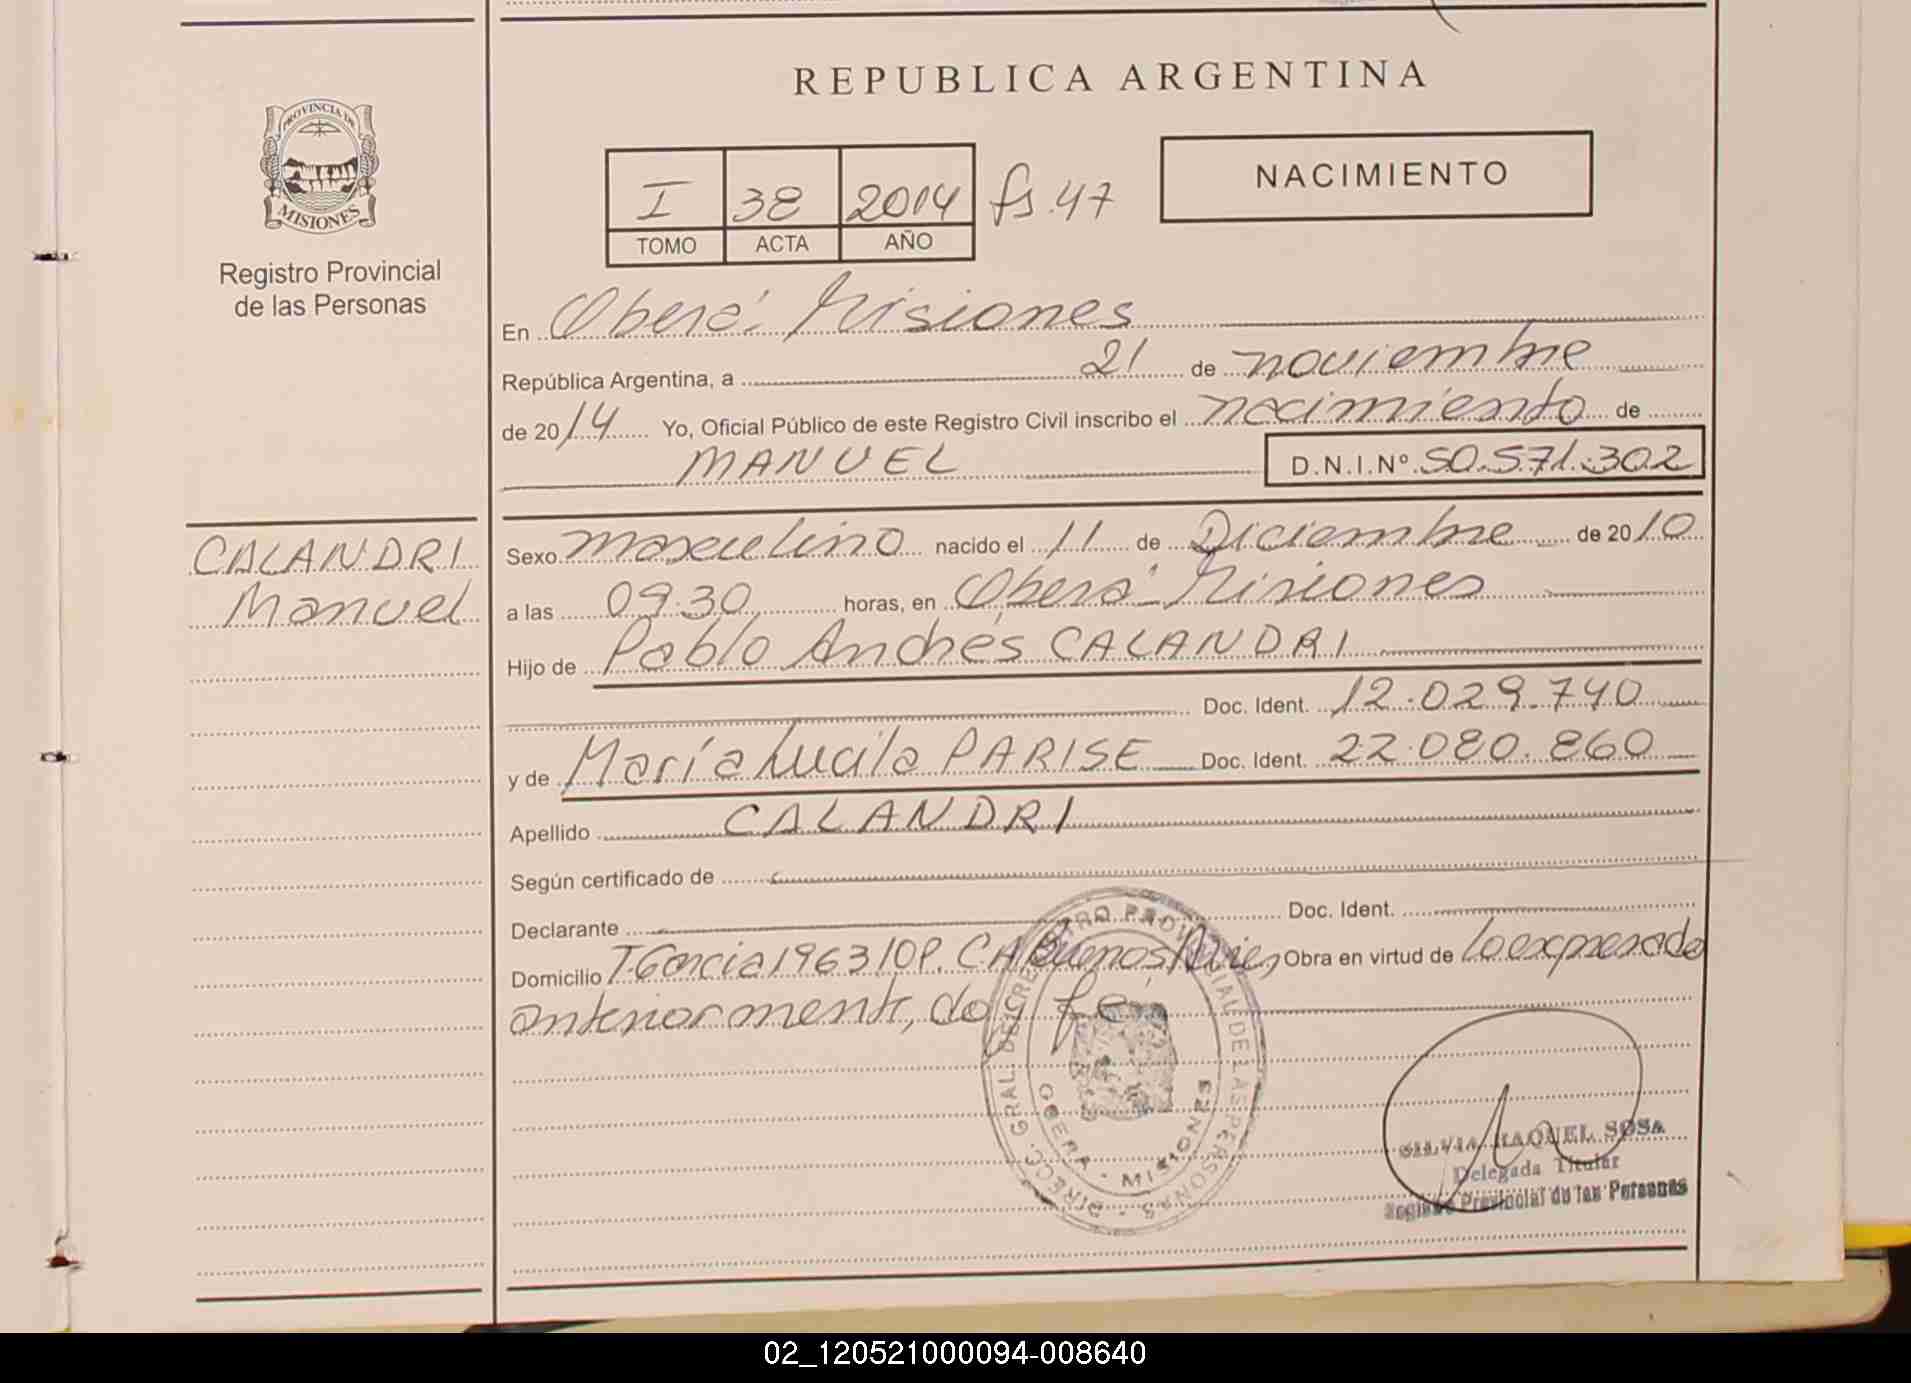 REPUBLICA ARGENTINA
PROVINCIA DE
MISIONES
Registro Provincial
de las Personas
I 38 2014 fs. 47
TOMO ACTA AÑO
NACIMIENTO
En Oberá. Misiones
República Argentina, a 21 de noviembre
de 2014 Yo, Oficial Público de este Registro Civil inscribo el nacimiento de
MANUEL D.N.I.Nº 50.571.302
CALANDRI
Manuel
Sexo masculino nacido el 11 de Diciembre de 2010
a las 09.30 horas, en Oberá Misiones
Hijo de Pablo Andrés CALANDRI
Doc. Ident. 12.029.740
y de María Lucila PARISE Doc. Ident. 22.080.860
Apellido CALANDRI
Según certificado de
Declarante Doc. Ident.
Domicilio T. Garcia 1963 10P. C.A Buenos Aires Obra en virtud de lo expresado
anteriormente, doy fé
DIRECC. GRAL. DE REGISTRO PROVINCIAL DE LAS PERSONAS
OBERA - MISIONES
SILVIA RAQUEL SOSA
Delegada Titular
Registro Provincial de las Personas
02_120521000094-008640